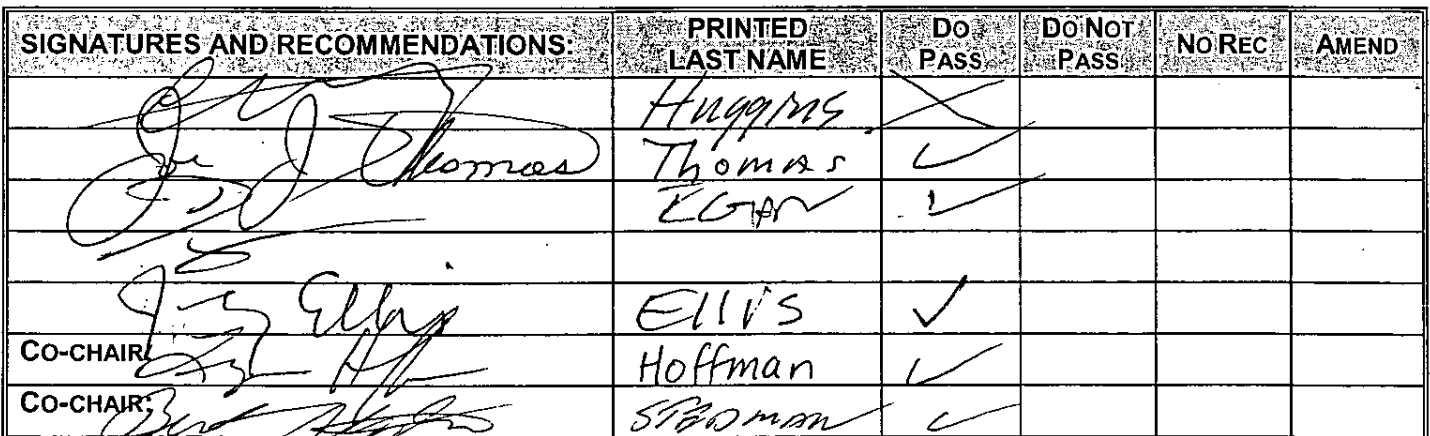 SIGNATURES AND RECOMMENDATIONS: PRINTED LAST NAME DO PASS DO NOT PASS NO REC AMEND
Huggins
Thomas Thomas ✓
EGAN ✓
Ellis Ellis ✓
CO-CHAIR: Hoffman ✓
CO-CHAIR: Bert STEDMAN ✓